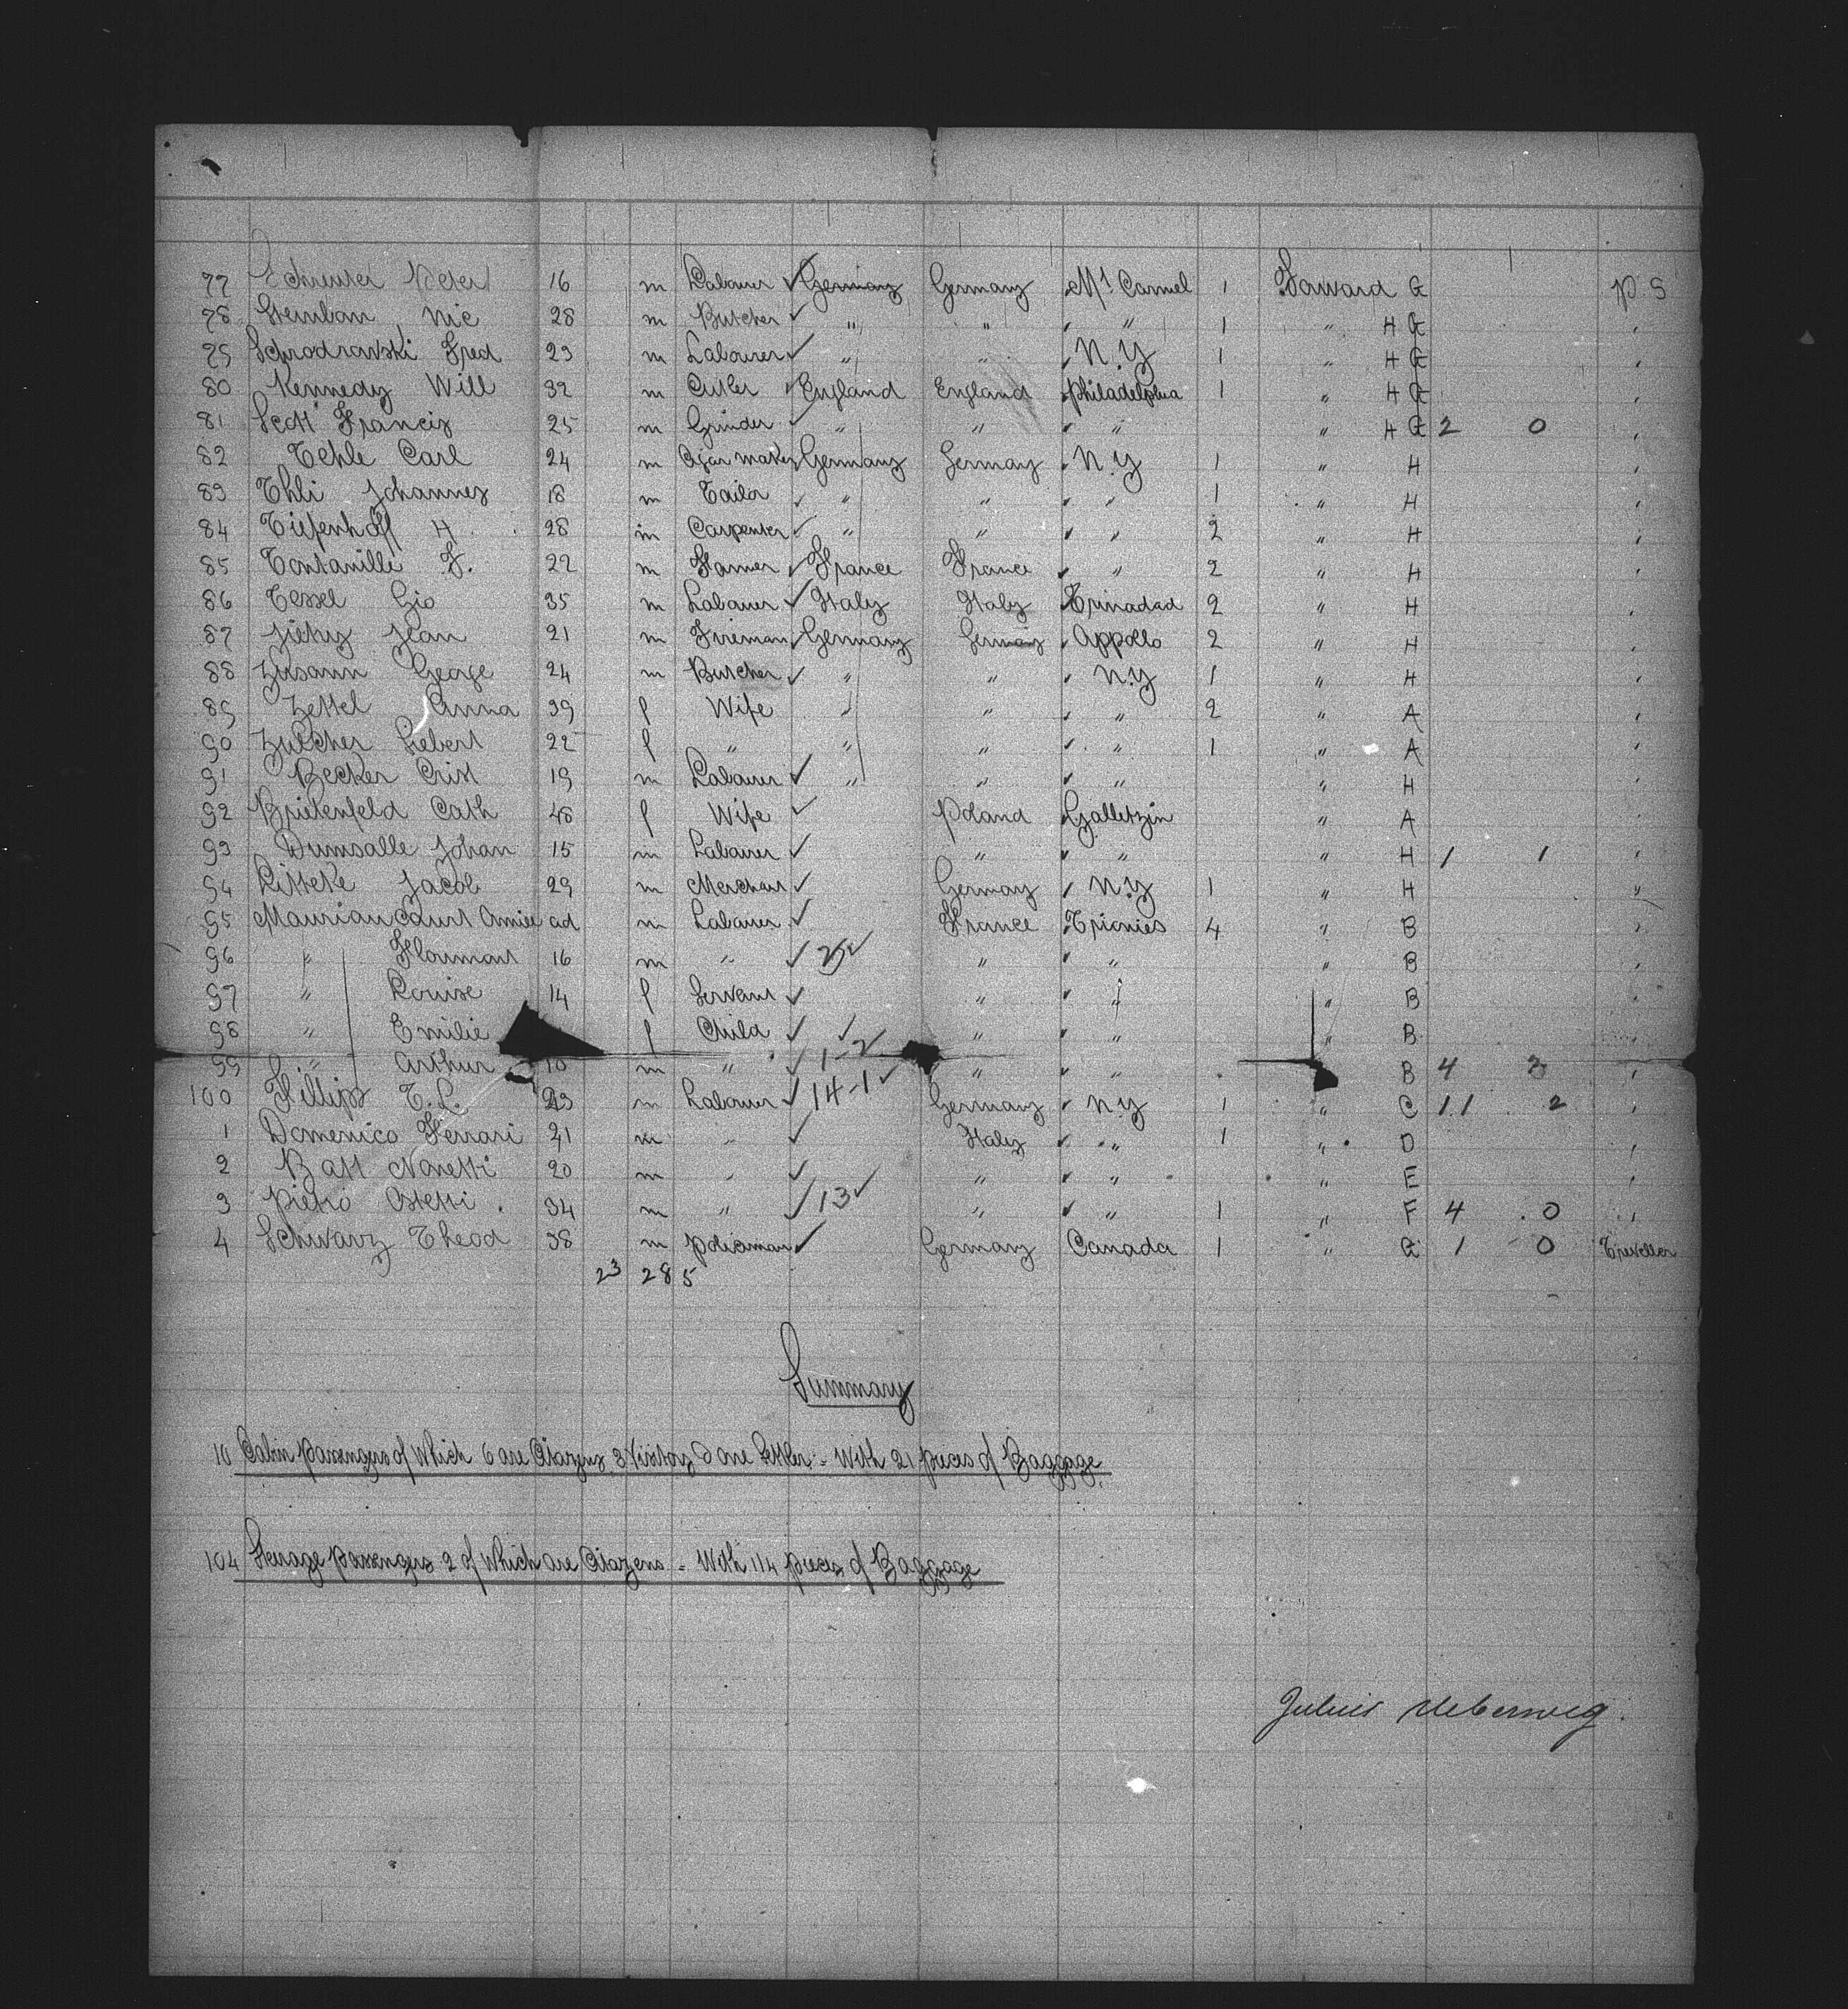 77 Schreuter Peter 16 m Labourer ✓ Germany Germany Mt Carmel 1 Forward G P.S
78 Steinban, Nic 28 m Butcher ✓ " " " " 1 " H G "
79 Schrodravski Fred 23 m Labourer ✓ " " N.Y 1 " H G "
80 Kennedy Will 32 m Cutler England England Philadelphia 1 " H G "
81 Scott Francis 25 m Grinder ✓ " " " " H G 2 0 "
82 Tehle Carl 24 m Cigar maker Germany Germany N.Y 1 " H "
83 Thli Johannes 18 m Tailor ✓ " " " 1 " H "
84 Tiefenhoff H. 28 m Carpenter ✓ " " " 2 " H "
85 Tontanille F. 22 m Farmer ✓ France France " 2 " H "
86 Tessel Gio 35 m Labourer ✓ Italy Italy Trinadad 2 " H "
87 Jean 21 m Fireman ✓ Germany Germany Appollo 2 " H "
88 Zusann George 24 m Butcher ✓ " " N.Y 1 " H "
89 Zettel Anna 39 f Wife " " " 2 " A "
90 Zulcher Liebert 22 f " " " " 1 " A "
91 Becker Crist 19 m Labourer ✓ " " " H "
92 Brietenfeld Cath 48 f Wife ✓ Poland Gallitzin " A "
93 Dumsalle Johan 15 m Labourer ✓ " " " H 1 1 "
94 Litteke Jacob 29 m Merchant ✓ Germany N.Y 1 " H "
95 Mauriancourt Amiee ad m Labourer ✓ France 4 " B "
96 " Flourmant 16 m " ✓ " " " B "
97 " Louise 14 f Servant ✓ " " " B "
98 " Emilie f Child ✓ ✓ " " " B "
99 " Arthur 10 m " ✓ 1-2 " " B 4 "
100 Fillips T.L. m Labourer ✓ 14-1 ✓ Germany N.Y 1 " C 11 2 "
1 Domenico Ferrari 21 m " ✓ Italy " 1 " D "
2 Batt Nonetti 20 m " ✓ " " " E "
3 Pietro Ostetti. 34 m " ✓ 13 ✓ " " 1 " F 4 0 "
4 Schwarz Theod 38 m Policeman ✓ Germany Canada 1 " G 1 0 Traveller
23 28 5
Summary
10 Cabin Passengers of Which 6 are Citazens 3 Visitors & one Settler - With 21 pieces of Baggage
104 Sterage Passengers 2 of Which are Citazens - With 114 pieces of Baggage
Julius Ueberweg.